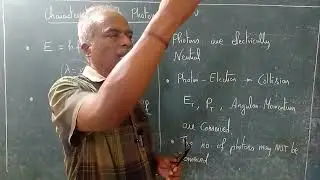 Photo
E = h
λ =
Photons are electrically
Neutral
Photon - Electron → Collision
E_T, P_T, Angular-Momentum
are Conserved.
The no. of photons may NOT be
conserved